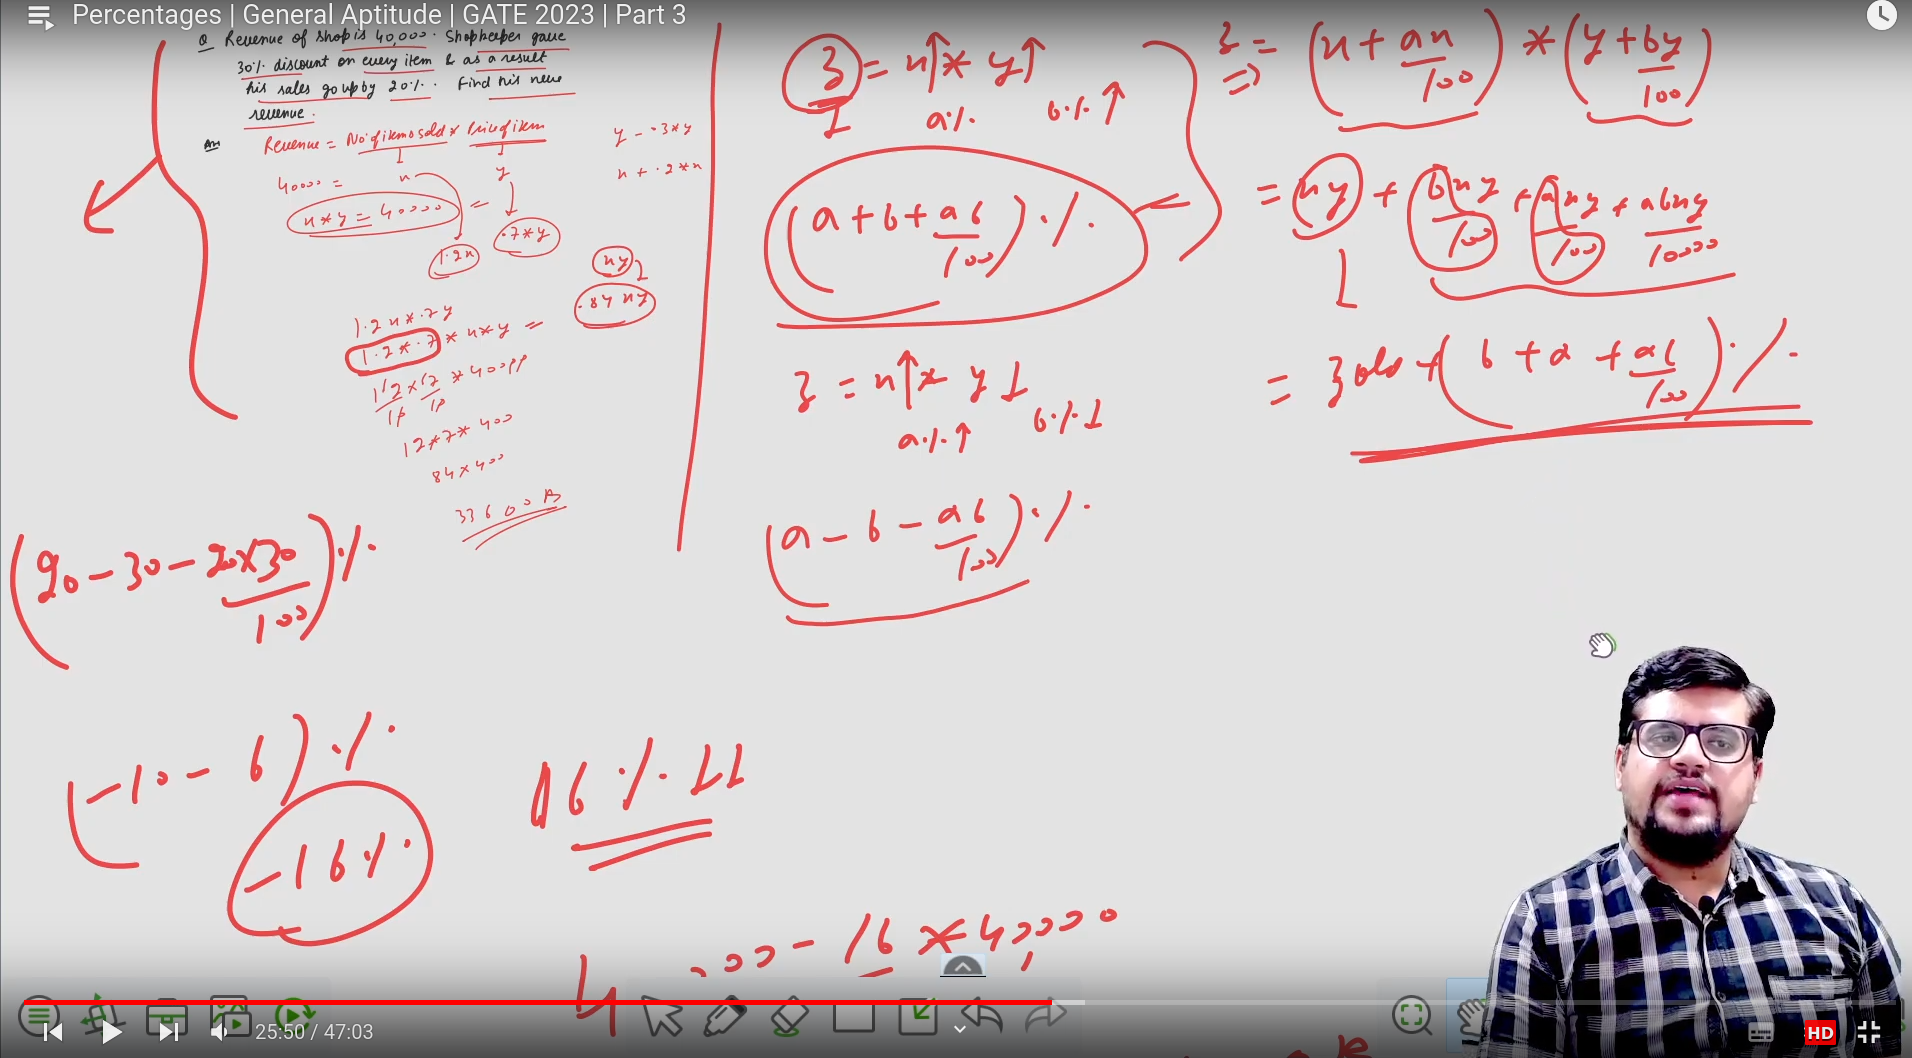 Percentages | General Aptitude | GATE 2023 | Part 3
Q Revenue of shop is 40,000. Shopkeeper gave
30% discount on every item & as a result
his sales go up by 20%. Find his new
revenue.
Ans Revenue = No. of items sold * Price of item
40000 = x y
x * y = 40000 =
1.2x .7*y
y - .3*y
x + .2*x
xy ↓
.84 xy
1.2x * .7y
1.2 * .7 * x*y =
12/10 × 7/10 * 40000
12*7*400
84×400
33600 A
(20 - 30 - 20×30/100) %
(-10 - 6) %
-16%
16% ↓↓
z = x↑ * y↑
a% b%↑
(a + b + ab/100) %
z = x↑ * y↓
a%↑ b%↓
(a - b - ab/100) %
z = (x + ax/100) * (y + by/100)
⇒
= xy + bxy/100 + axy/100 + abxy/10000
= z old + (b + a + ab/100) %
000 - 16 * 40000
25:50 / 47:03
HD